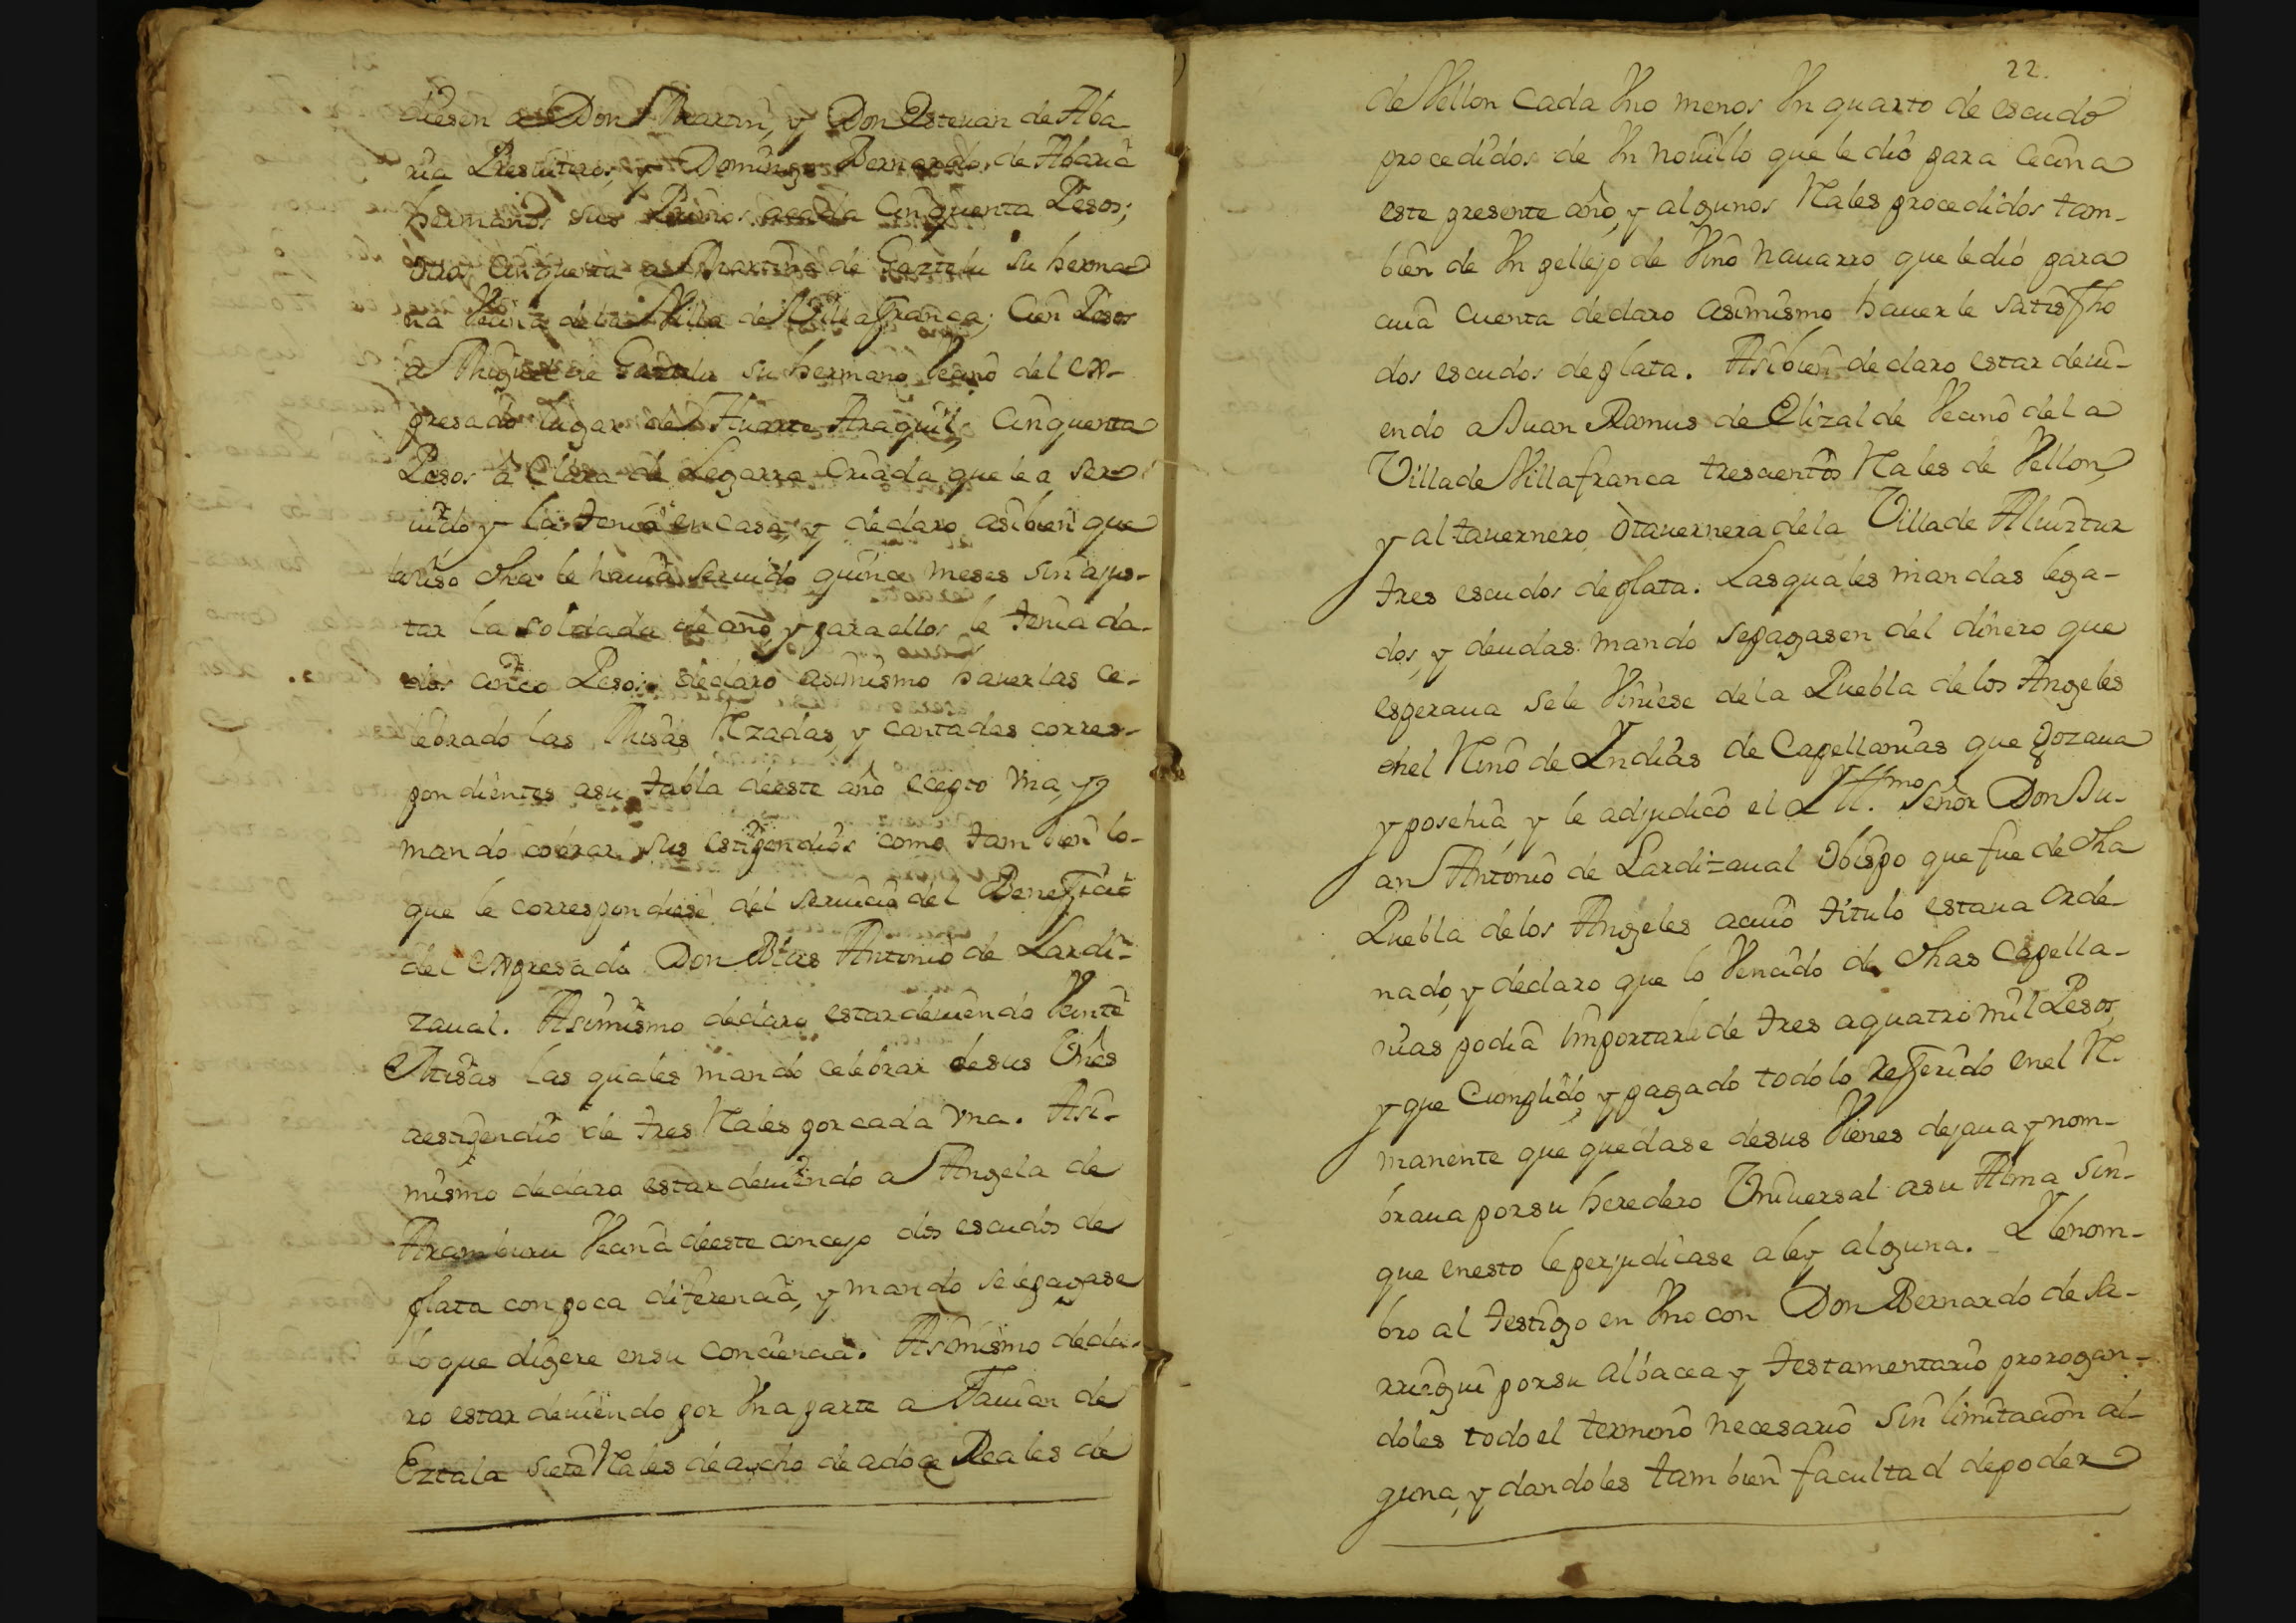 diesen a Don Martin, y Don Esteuan de Aba
ria Presuiteros, y Domingo Bernardo de Abaria
hermanos sus Primos acada Cinquenta Pesos;
otros Cinquenta a Martina de Gaztelu su herma
na Vecina dela Villa de Villafranca; Cien Pesos
a Miguel de Gaztelu su hermano Vecino del ex-
presado lugar de Huarte Araquil; Cinquenta
Pesos a Clara de Legarra Criada que le a ser
uido y la tenia en casa, y declaro asibien que
la dha le hauia seruido quince meses sin ajus-
tar la soldada de año, y para ellos le tenia da-
dos cinco Pesos; declaro asimismo hauerlas ce-
lebrado las Misas Rezadas, y cantadas corres-
pondientes asu tabla deeste año ecepto Vna, y
mando cobrar sus estipendios como tambien lo-
que le correspondiese del seruicio del Beneficio
del expresado Don Blas Antonio de Lardi-
zaual. Asimismo declaro estar deuiendo Veinte
Misas las quales mando celebrar desus Vnes
aestipendio de tres Rales por cada Vna. Asi-
mismo declaro estar deuiendo a Angela de
Aramburu Vecina deeste concejo dos escudos de
plata con poca diferencia, y mando selepagase
lo que dijere ensu conciencia. Asimismo decla-
ro estar deuiendo por Vna parte a Fauian de
Eztala siete Rales de aocho de adoce Reales de
22.
de Vellon Cada Vno menos Vn quarto de escudo
procedidos de Vn nouillo que le dio para Cecina
este presente año, y algunos Rales procedidos tam-
bien de Vn pellejo de Vino nauarro que ledio para
cuia cuenta declaro asimismo hauerle satisfho
dos escudos de plata. Asibien declaro estar deui-
endo a Juan Ramus de Elizalde Vecino dela
Villa de Villafranca trescientos Rales de Vellon,
y al tauernero, o tauernera dela Villa de Aluiztur
tres escudos deplata. Lasquales mandas lega-
dos, y deudas mando sepagasen del dinero que
esperaua sele Viniese dela Puebla delos Angeles
enel Rino de Yndias de Capellanias que gozaua
y posehia, y le adjudico el Yllmo Señor Don Ju-
an Antonio de Lardizaual Obispo que fue de dha
Puebla delos Angeles acuio titulo estaua orde-
nado, y declaro que lo Vencido de dhas Capella-
nias podia importarle de tres aquatro mil Pesos,
y que Cumplido, y pagado todolo Referido enel R.
manente que quedase desus Vienes dejaua y nom-
braua porsu heredero Vniuersal asu Alma sin-
que enesto leperjudicase aley alguna. Y lenom-
bro al testigo en Vno con Don Bernardo de Sa-
rriegui porsu albacea y testamentario prorogan-
doles todo el termino necesario sin limitacion al-
guna, y dandoles tambien facultad depoder